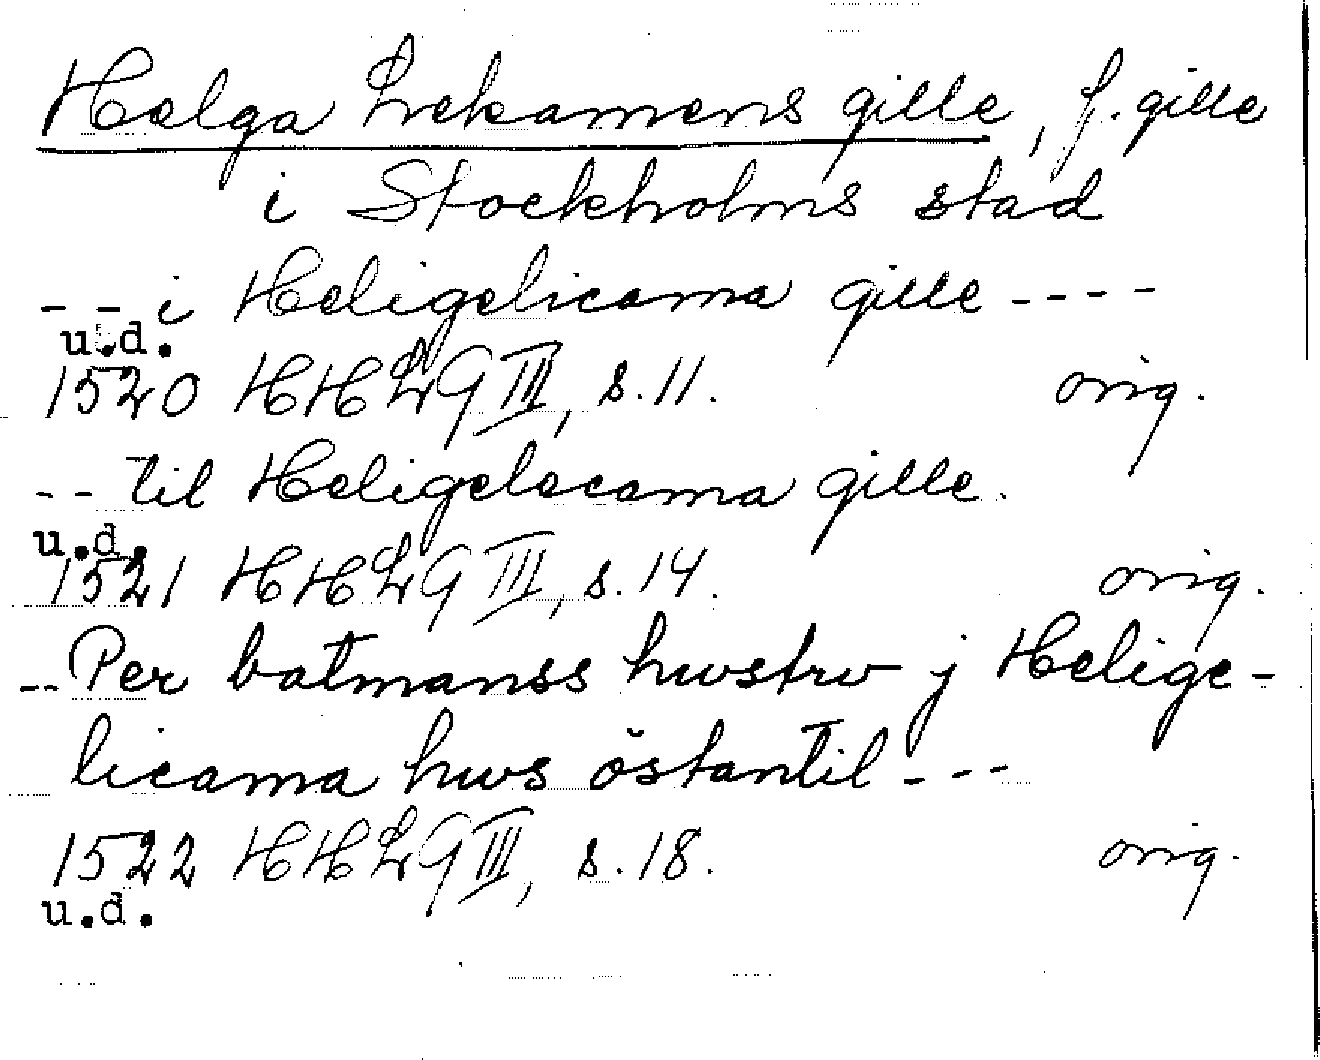 Helga Lekamens gille, f. gille
i Stockholms stad
-- i Heligelicama gille ----
u.d.
1520 HHLG III, s. 11. orig.
-- til Heligelecama gille.
u.d.
1521 HHLG III, s. 14. orig.
-- Per batmanss hwstrv j Helige-
licama hws östantil ---
1522 HHLG III, s. 18. orig.
u.d.